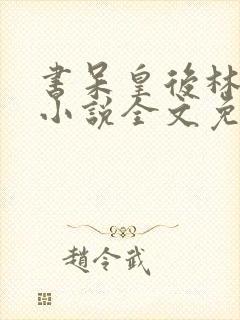 書呆皇後林
小說全文免
趙令武